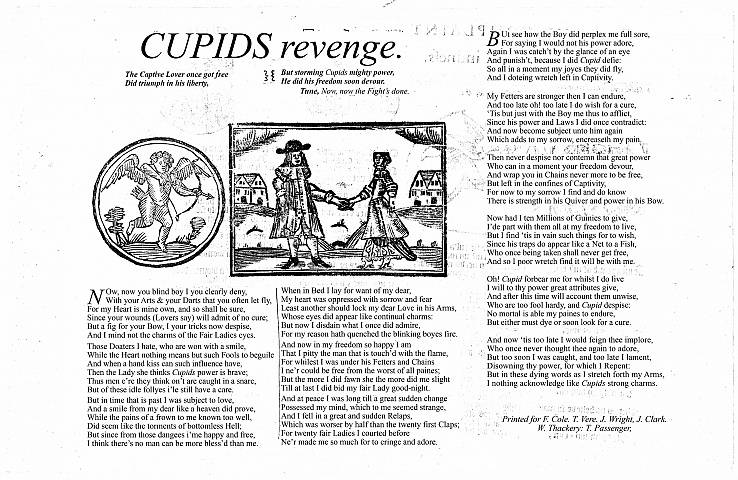 CUPIDS revenge.
The Captive Lover once got free
Did triumph in his liberty,
But storming Cupids mighty power,
He did his freedom soon devour.
Tune, Now, now the Fight's done.
NOw, now you blind boy I you clearly deny,
With your Arts & your Darts that you often let fly,
For my Heart is mine own, and so shall be sure,
Since your wounds (Lovers say) will admit of no cure;
But a fig for your Bow, I your tricks now despise,
And I mind not the charms of the Fair Ladies eyes.
Those Doaters I hate, who are won with a smile,
While the Heart nothing means but such Fools to beguile
And when a hand kiss can such influence have,
Then the Lady she thinks Cupids power is brave;
Thus men e're they think on't are caught in a snare,
But of these idle follyes i'le still have a care.
But in time that is past I was subject to love,
And a smile from my dear like a heaven did prove,
While the pains of a frown to me known too well,
Did seem like the torments of bottomless Hell;
But since from those dangees i'me happy and free,
I think there's no man can be more bless'd than me.
When in Bed I lay for want of my dear,
My heart was oppressed with sorrow and fear
Least another should lock my dear Love in his Arms,
Whose eyes did appear like continual charms:
But now I disdain what I once did admire,
For my reason hath quenched the blinking boyes fire.
And now in my freedom so happy I am
That I pity the man that is touch'd with the flame,
For whilest I was under his Fetters and Chains
I ne'r could be free from the worst of all paines;
But the more I did fawn she the more did me slight
Till at last I did bid my fair Lady good-night.
And at peace I was long till a great sudden change
Possessed my mind, which to me seemed strange,
And I fell in a great and sudden Relaps,
Which was worser by half than the twenty first Claps;
For twenty fair Ladies I courted before
Ne'r made me so much for to cringe and adore.
BUt see how the Boy did perplex me full sore,
For saying I would not his power adore,
Again I was catch't by the glance of an eye
And punish't, because I did Cupid defie:
So all in a moment my joyes they did fly,
And I doteing wretch left in Captivity.
My Fetters are stronger then I can endure,
And too late oh! too late I do wish for a cure,
'Tis but just with the Boy me thus to afflict,
Since his power and Laws I did once contradict:
And now become subject unto him again
Which adds to my sorrow, encreaseth my pain.
Then never despise nor contemn that great power
Who can in a moment your freedom devour,
And wrap you in Chains never more to be free,
But left in the confines of Captivity,
For now to my sorrow I find and do know
There is strength in his Quiver and power in his Bow.
Now had I ten Millions of Guinies to give,
I'de part with them all at my freedom to live,
But I find 'tis in vain such things for to wish,
Since his traps do appear like a Net to a Fish,
Who once being taken shall never get free,
And so I poor wretch find it will be with me.
Oh! Cupid forbear me for whilst I do live
I will to thy power great attributes give,
And after this time will account them unwise,
Who are too fool hardy, and Cupid despise:
No mortal is able my paines to endure,
But either must dye or soon look for a cure.
And now 'tis too late I would feign thee implore,
Who once never thought thee again to adore,
But too soon I was caught, and too late I lament,
Disowning thy power, for which I Repent:
But in these dying words as I stretch forth my Arms,
I nothing acknowledge like Cupids strong charms.
Printed for F. Cole. T. Vere. J. Wright, J. Clark.
W. Thackery: T. Passenger,